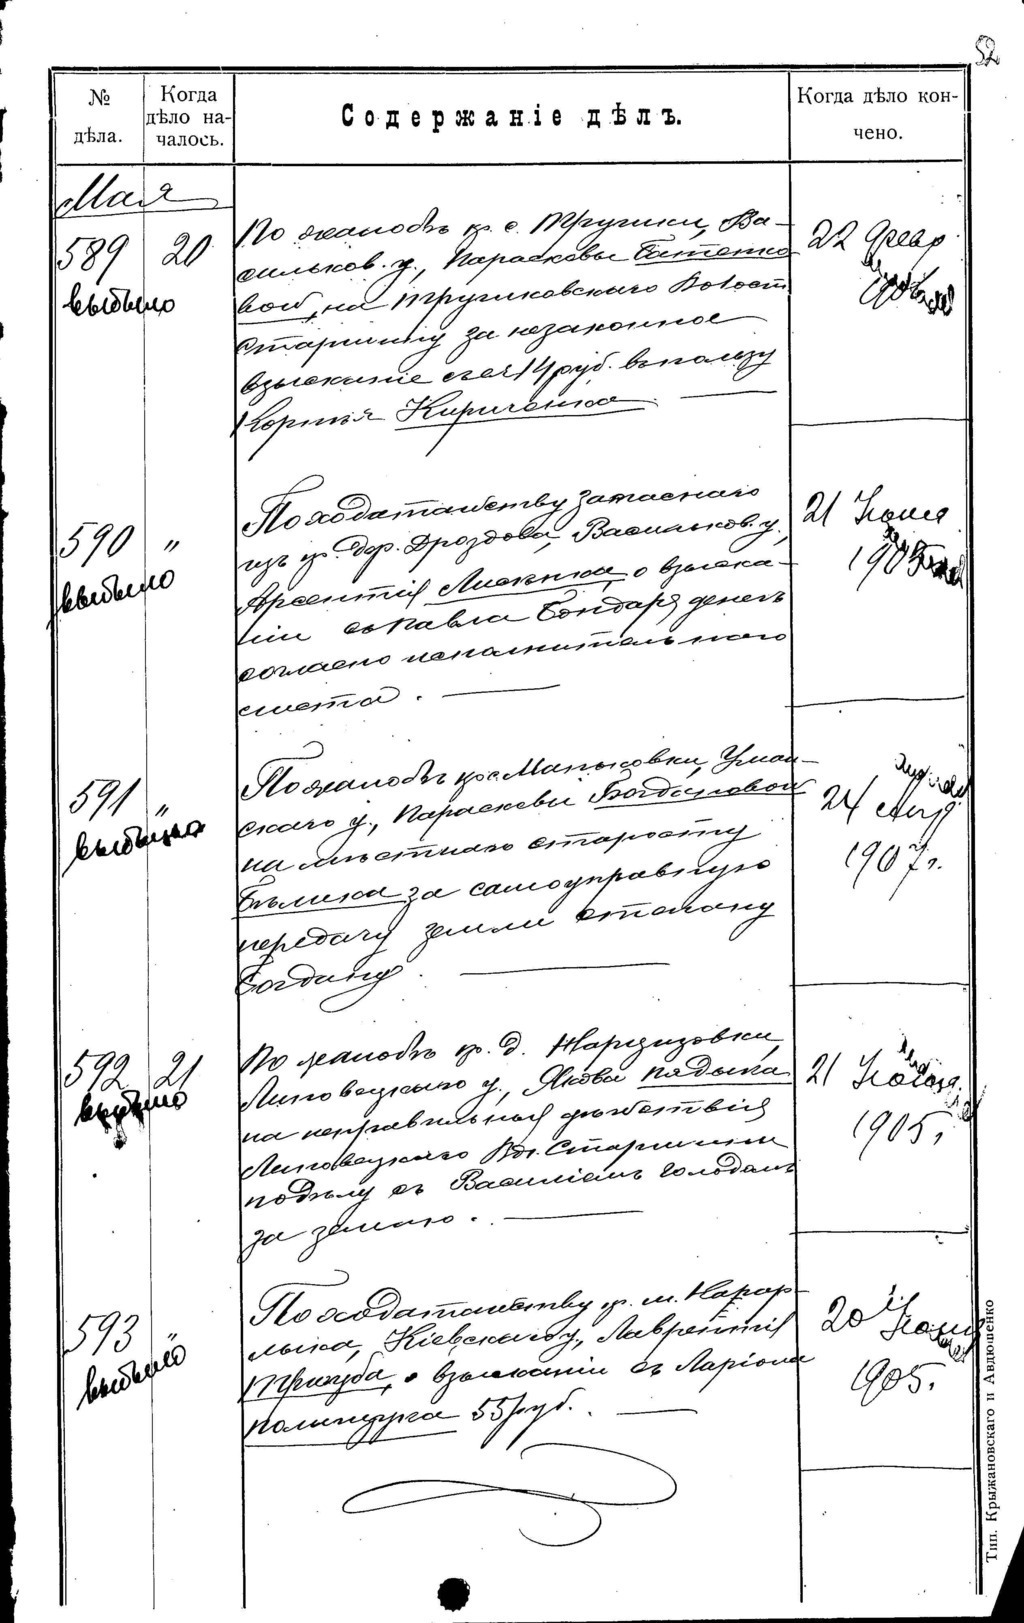 52
№ дѣла.
Когда дѣло на-
чалось.
Содержаніе дѣлъ.
Когда дѣло кон-
чено.
Мая
589 20
выбыло
По жалобѣ кр. с. Тругики, Ва-
сильков. у., Парасковьи Батенко
вой, на Тругиковскаго Волост
Старшину за незаконное
взысканіе съ ея 14 руб. въ пользу
Корнія Кириченка
22 Февр
590 "
выбыло
По ходатайству запаснаго
изъ кр. дер. Дроздова, Васильков. у.,
Арсентія Лисенка, о взыска-
ніи съ Павла Бондаря денегъ
согласно исполнительнаго
листа.
21 Іюня
1905
591 "
выбыло
По жалобѣ кр. с. Маньковки, Уман-
скаго у., Параскевы Богдановой
на мѣстнаго старосту
Бѣлика за самоуправную
передачу земли Степану
Богдану.
24 Авг
1907 г.
592 21
выбыло
По жалобѣ кр. д. Нарцизовки,
Липовецкаго у., Якова Кадыка
на неправильныя дѣйствія
Липовецкаго Вол. Старшины
по дѣлу съ Василіемъ Голоданъ
за землю.
21 Іюня
1905,
593 "
выбыло
По ходатайству кр. м. Карар
лыка, Кіевскаго у., Лаврентія
Тригуба, о взысканіи съ Ларіона
Полищука 55 руб.
20 Іюня
1905.
Тип. Крыжановскаго и Авдюшенко